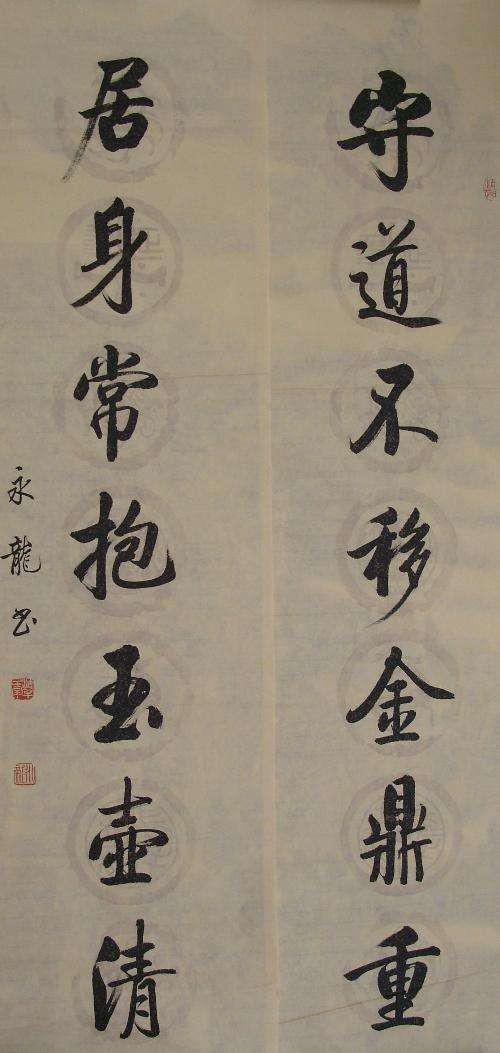 守道不移金鼎重
居身常抱玉壶清
永龍书